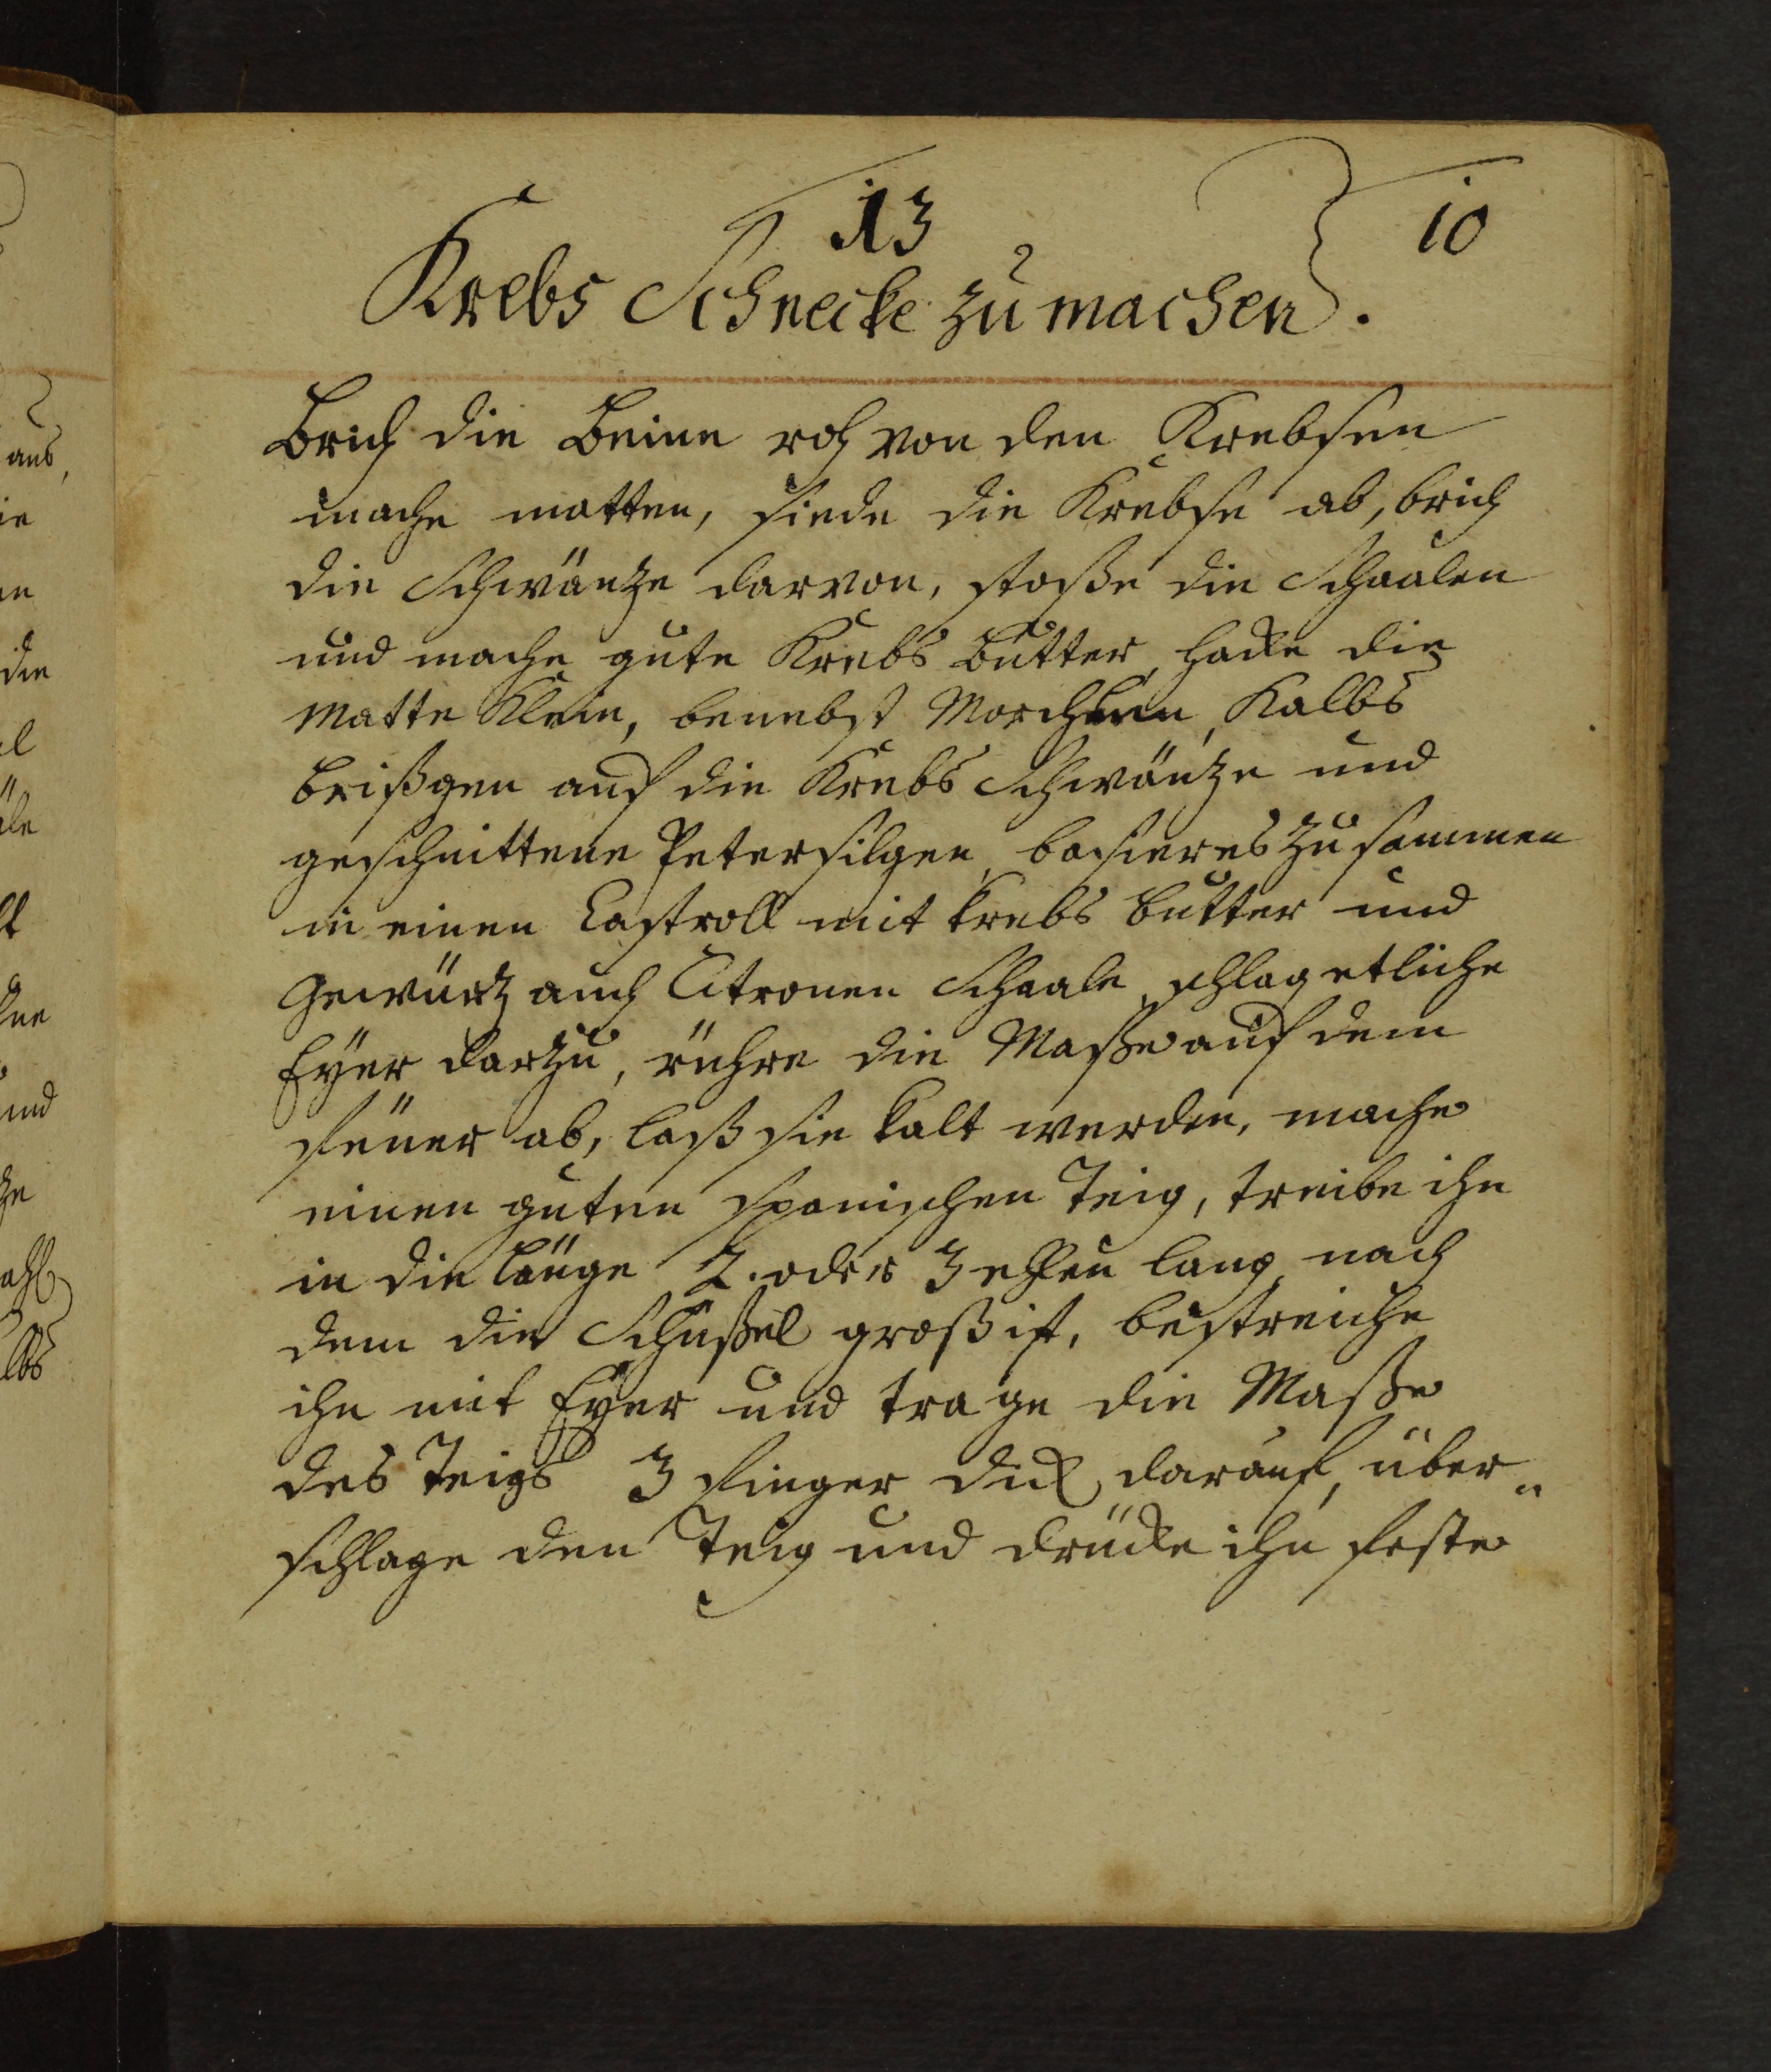 13
10
Krebs Schnecke zu machen.
Brich die Beine roh von den Krebsen
mache matten, siede die Krebse ab, brich
die Schwäntze darvon, stoße die Schaalen
und mache gute Krebs Butter, hacke die
Matte Klein, benebst Morcheln, Kalbs
brißgen auch die Krebs Schwäntze und
geschnittene Petersilgen, basieres zusammen
in einen Castroll mit Krebs butter und
Gewürtz auch Citronen Schaale, schlag etliche
Eyer darzu, rühre die Maße auf dem
Feüer ab, laß sie kalt werden, mache
einen guten spanischen Teig, treibe ihn
in die länge 2. oder 3 ehlen lang nach
dem die Schüßel groß ist, bestreiche
ihn mit Eyer und trage die Maße
des Teigs 3 Finger dick darauf, über„
schlage den Teig und drücke ihn feste
aus,
die
und
lbs